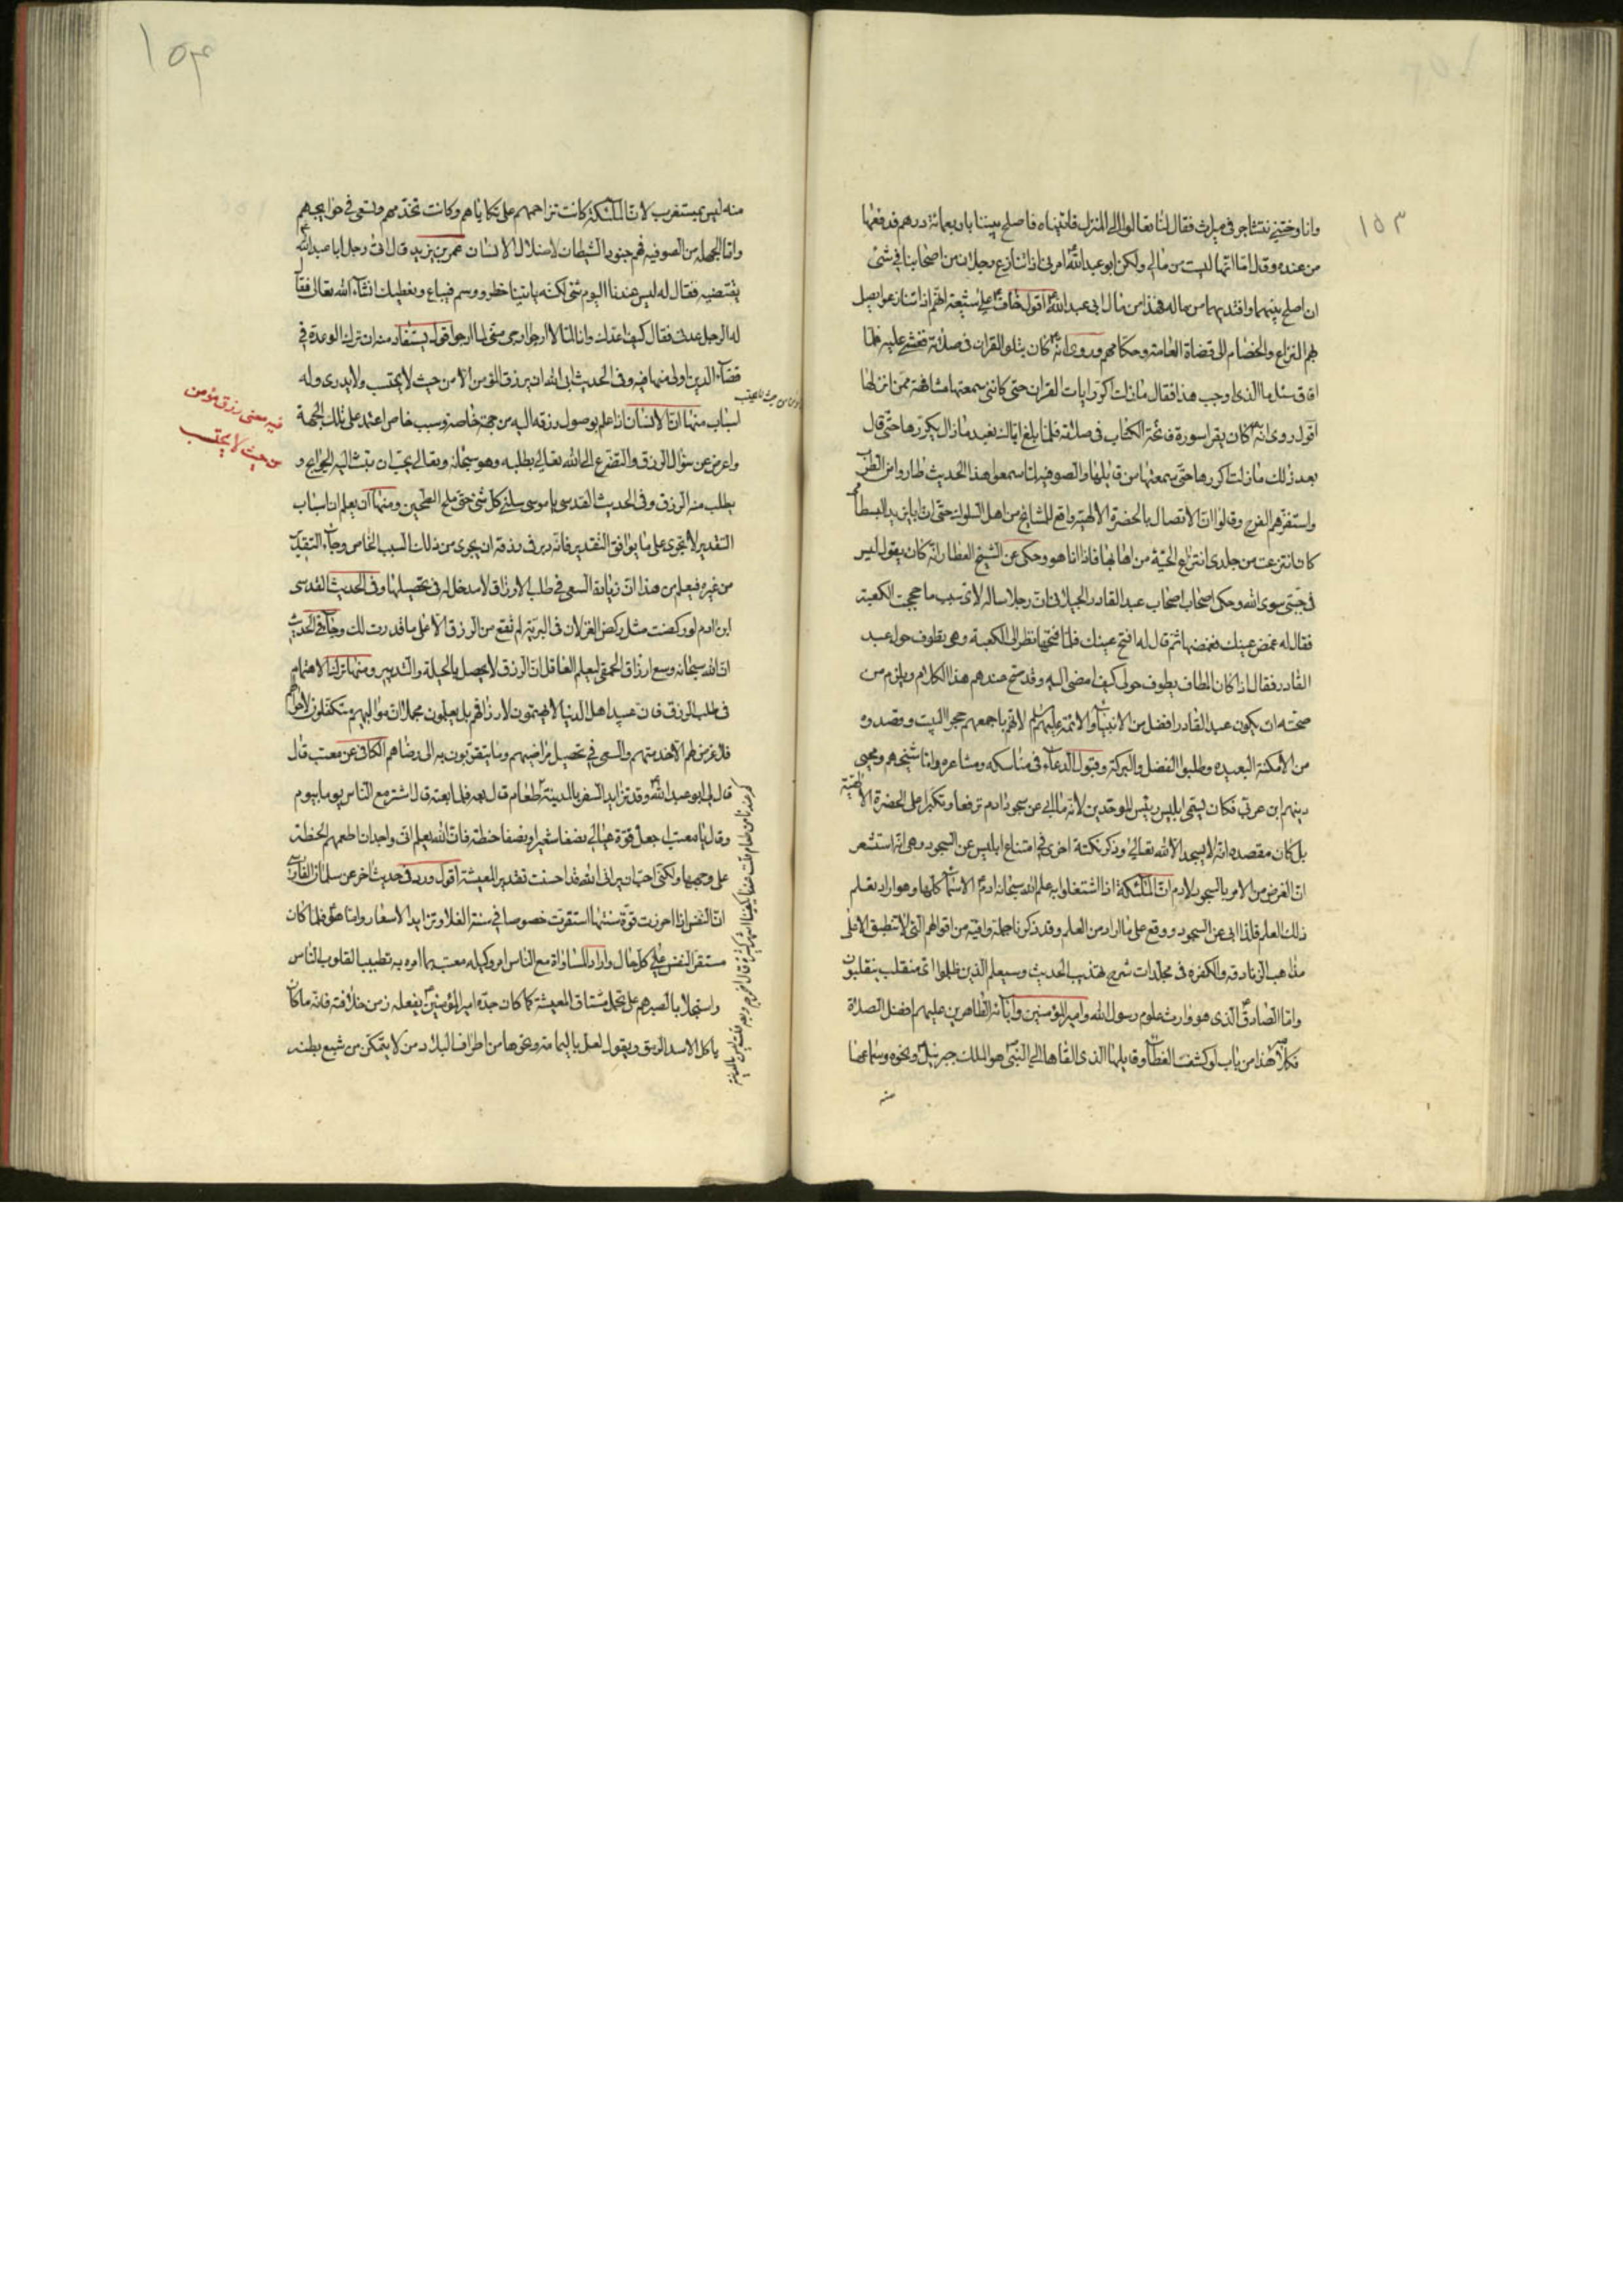 ١٥٣
وانا وختني نتشاجر في ميراث فقال لنا تعالوا الى المنزل فاتيناه فاصلح بيننا باربعمائة درهم فدفعها
من عنده وقال اما انها ليست من مالي ولكن ابو عبد الله امرني اذا تنازع رجلان من اصحابنا في شئ
ان اصلح بينهما وافتديهما من ماله فهذا من مال ابي عبد الله اقول خاف على شيعته انهم اذا تنازعوا يصل
لهم النزاع والخصام الى قضاة العامة وحكامهم وروى انه كان يتلو القران في صلاته فغشي عليه فلما
افاق سئل ما الذي اوجب هذا فقال مازلت اكرر ايات القران حتى كانني سمعتها مشافهة ممن انزلها
اقول روى انه كان يقرا سورة فاتحة الكتاب في صلاته فلما بلغ اياك نعبد مازال يكررها حتى قال
بعد ذلك مازلت اكررها حتى سمعتها من قائلها والصوفية لما سمعوا هذا الحديث طاروا من الطرب
واستفزهم الفرح وقالوا ان الاتصال بالحضرة الالهية واقع للمشايخ من اهل السلوك حتى ان بايزيد البسطامي
كان انتزعت من جلدي انتزاع الحية من اهابها فاذا انا هو وحكى عن الشيخ العطار انه كان يقول ليس
في جبتي سوى الله وحكى اصحاب اصحاب عبد القادر الجيلاني ان رجلا ساله لاي سبب ما حججت الكعبة
فقال له غمض عينك فغمضها ثم قال له افتح عينك فلما فتحها نظر الى الكعبة وهي تطوف حول عبد
القادر فقال اذا كان المطاف يطوف حولي كيف امضي اليه وقد صح عندهم هذا الكلام ويلزم من
صحته ان يكون عبد القادر افضل من الانبياء والائمة عليهم لانهم باجمعهم حجوا البيت وقصدوه
من الامكنة البعيدة وطلبوا الفضل والبركة وقبول الدعاء في مناسكه ومشاعره واما شيخهم ومحيى
دينهم ابن عربي فكان يسمى ابليس رئيس الموحدين لانه ما ابي عن سجود ادم ترفعا وتكبرا على الحضرة الالهية
بل كان مقصده انه لا يسجد الا لله تعالى وذكر نكتة اخرى في امتناع ابليس عن السجود وهي انه استشعر
ان الغرض من الامر بالسجود لادم ان الملئكة اذا اشتغلوا به علم الله سبحانه ادم الاسماء كلها وهو اراد تعلم
ذلك العلم فلذا ابي عن السجود ووقع على ما اراد من العلم وقد ذكرنا جملة وافية من اقوالهم التي لا تنطبق الا على
مذاهب الزنادقه والكفره في مجلدات شرح تهذيب الحديث وسيعلم الذين ظلموا اي منقلب ينقلبون
واما الصادق الذي هو وارث علوم رسول الله وامير المؤمنين وابائه الطاهرين عليهم افضل الصلاة
فكلامه هذا من باب لو كشف الغطاء وقائلها الذي القاها الى النبي هو الملك جبرئيل ونحوه وسماعها
منه
١٥٤
منه ليس بمستغرب لان الملئكة كانت تزاحمهم على تكاياهم وكانت تخدمهم وتسعى في حوايجهم
واما الجهلة من الصوفيه فهم جنود الشيطان لاضلال الانسان عمر بن يزيد قال اتى رجل ابا عبد الله
يقتضيه فقال له ليس عندنا اليوم شئ لكنه ياتينا خطر ووسم فيباع ونعطيك انشاء الله تعالى فقال
له الرجل عدني فقال كيف اعدك وانا لما لا ارجوا ارجى مني لما ارجوا اقول يستفاد منه ان ترك الوعدة في
قضاء الدين اولى منها فيه وفي الحديث ابى الله ان يرزق المؤمن الا من حيث لا يحتسب ولا يدري وله
اسباب منها ان الانسان اذا علم بوصول رزقه اليه من جهة خاصة وسبب خاص اعتمد على تلك الجهة
واعرض عن سؤال الرزق والتضرع الى الله تعالى بطلبه وهو سبحانه وتعالى يحب ان تبث اليه الحوايج و
يطلب منه الرزق وفي الحديث القدسي يا موسى سلني كل شئ حتى ملح العجين ومنها ان يعلم ان اسباب
التقدير لا تجري على ما يوافق التقدير فانه دبر في رزقه ان يجري من ذلك السبب الخاص وجاء التقدير
من غيره فيعلم من هذا ان زيادة السعي في طلب الارزاق لا مدخل له في تحصيلها وفي الحديث القدسي
ابن ادم لو ركضت مثل ركض الغزلان في البرية لم تقع من الرزق الا على ما قدرت لك وجاء في الحديث
ان الله سبحانه وسع ارزاق الحمقى ليعلم العاقل ان الرزق لا يحصل بالحيلة والتدبير ومنها ترك الاهتمام
في طلب الرزق فان عبيد اهل الدنيا لا يهتمون لارزاقهم بل يعلمون مجملا ان مواليهم متكفلون لاهلها
فلا غرض لهم الا خدمتهم والسعي في تحصيل مراضيهم وما يتقربون به الى رضاهم الكافي عن معتب قال
قال لي ابو عبد الله وقد تزايد السعر بالمدينة طعام قال بعه فلما بعته قال اشتر مع الناس يوما بيوم
وقال يا معتب اجعل قوة عيالي نصفا شعيرا ونصفا حنطة فان الله يعلم اني واجد ان اطعمهم الحنطة
على وجهها ولكني احب ان يراني الله قد احسنت تقدير المعيشة اقول ورد في حديث اخر عن سلمان الفارسي
ان النفس اذا احرزت قوة سنتها استقرت خصوصا في سنة الغلا وتزايد الاسعار واما هو فلما كان
مستقر النفس على كل حال واراد المساواة مع الناس امر وكيله معتب بما امره به تطييبا لقلوب الناس
واستجلابا لصبرهم على تحمل مشاق المعيشة كما كان جده امير المؤمنين يفعله زمن خلافته فانه ما كان
ياكل الا سد الرمق ويقول لعل باليمامة ونحوها من اطراف البلاد من لا يتمكن من شبع بطنه
فيه معنى رزق مؤمن
من حيث لا يحتسب